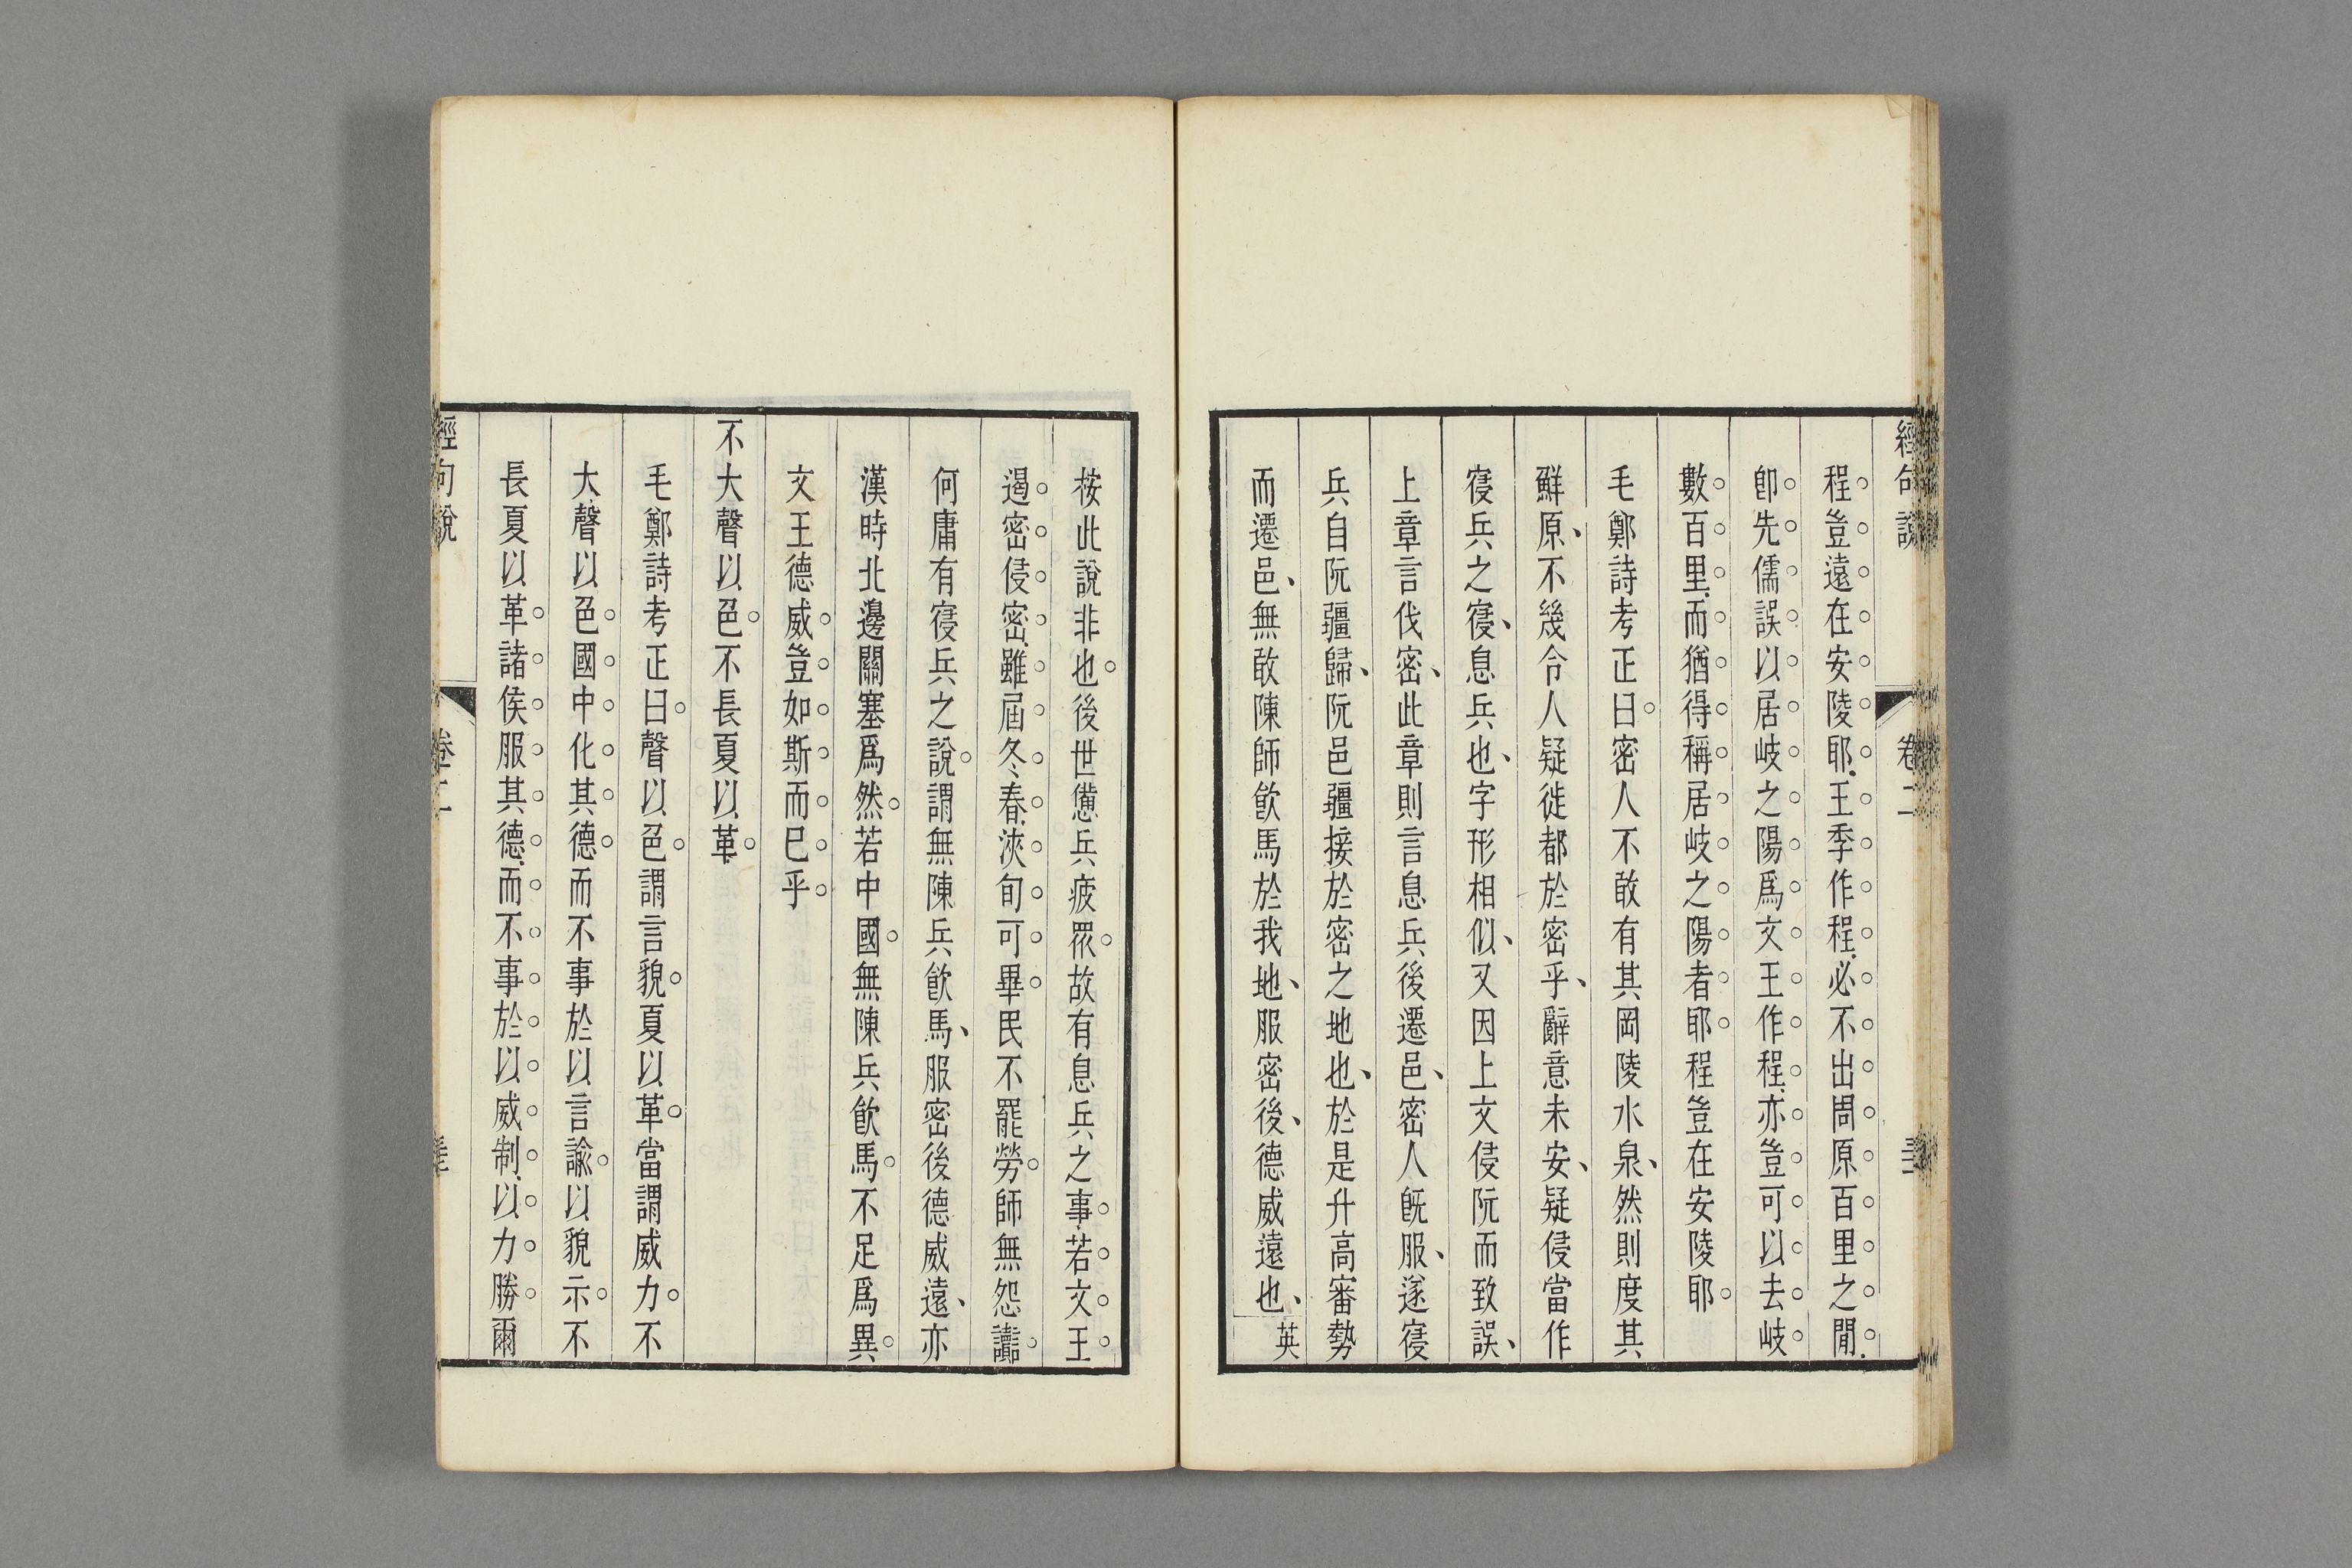 經句說 卷二
程豈遠在安陵耶王季作程必不出周原百里之閒
卽先儒誤以居岐之陽爲文王作程亦豈可以去岐
數百里而猶得稱居岐之陽者耶程豈在安陵耶
毛鄭詩考正曰密人不敢有其岡陵水泉然則度其
鮮原不幾令人疑徙都於密乎辭意未安疑侵當作
寑兵之寑息兵也字形相似又因上文侵阮而致誤
上章言伐密此章則言息兵後遷邑密人旣服遂寑
兵自阮疆歸阮邑疆接於密之地也於是升高審勢
而遷邑無敢陳師飮馬於我地服密後德威遠也英
按此說非也後世憊兵疲眾故有息兵之事若文王
遏密侵密雖屆冬春浹旬可畢民不罷勞師無怨讟
何庸有寑兵之說謂無陳兵飮馬服密後德威遠亦
漢時北邊關塞爲然若中國無陳兵飮馬不足爲異
文王德威豈如斯而已乎
不大聲以色不長夏以革
毛鄭詩考正曰聲以色謂言貌夏以革當謂威力不
大聲以色國中化其德而不事於以言諭以貌示不
長夏以革諸侯服其德而不事於以威制以力勝爾
經句說 卷二